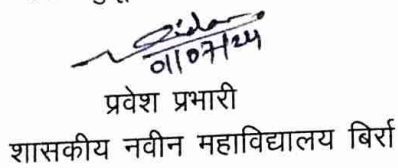 01/07/24
प्रवेश प्रभारी
शासकीय नवीन महाविद्यालय बिर्रा